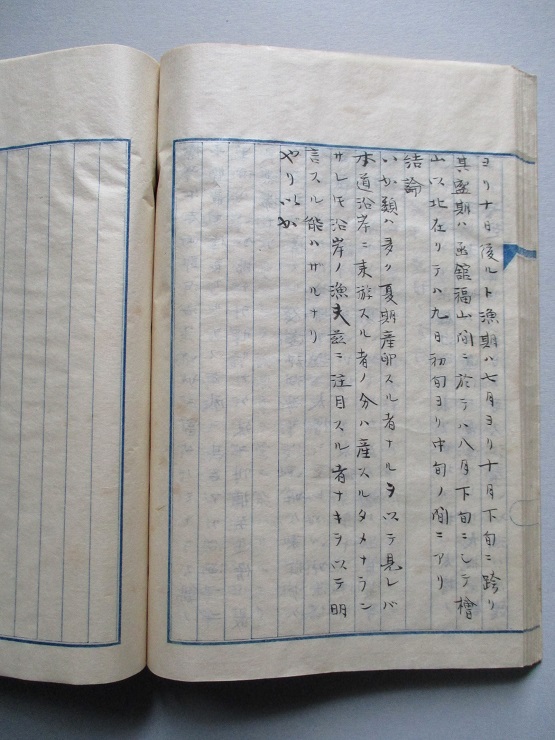 ヨリ十日後ルト漁期ハ七月ヨリ十月下旬ニ跨リ
其盛期ハ函舘福山間ニ於テハ八月下旬ニシテ檜
山以北在リテハ九日初旬ヨリ中旬ノ間ニアリ
結論
いか類ハ多ク夏期産卵スル者ナルヲ以テ見レバ
本道沿岸ニ来游スル者ノ分ハ産スルタメナラン
サレ𪜈沿岸ノ漁夫茲ニ注目スル者ナキヲ以テ明
言スル能ハサルナリ
やりいか